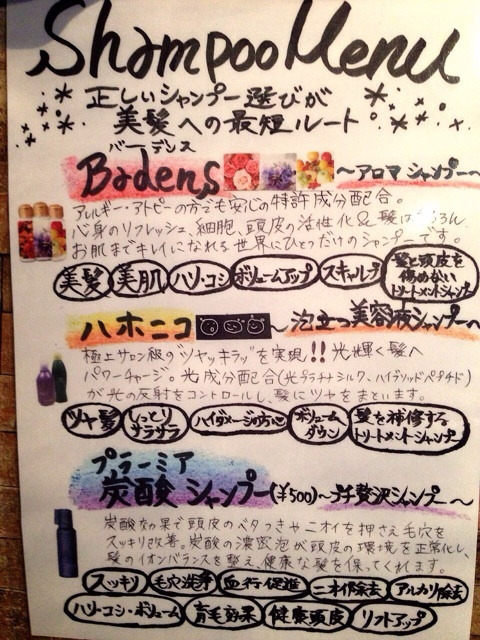 Shampoo Menu
正しいシャンプー選びが
美髪への最短ルート
バーデンス
Badens 〜アロマシャンプー〜
アレルギー・アトピーの方でも安心の特許成分配合。
心身のリフレッシュ、細胞、頭皮の活性化&髪はもちろん
お肌までキレイになれる世界にひとつだけのシャンプーです。
美髪 美肌 ハリ・コシ ボリュームアップ スキャルプ 髪と頭皮を傷めないトリートメントシャンプー
ハホニコ 〜泡立つ美容液シャンプー〜
極上サロン級の"ツヤッキラッ"を実現!!光輝く髪へ
パワーチャージ。光成分配合(光プラチナシルク、ハイブリッドペプチド)
が光の反射をコントロールし、髪にツヤをまといます。
ツヤ髪 しっとりサラサラ ハイダメージの方に ボリュームダウン 髪を補修するトリートメントシャンプー
プラーミア
炭酸シャンプー(¥500)〜プチ贅沢シャンプー〜
炭酸効果で頭皮のベタつきやニオイを押さえ毛穴を
スッキリ改善。炭酸の濃密泡が頭皮の環境を正常化し、
髪のイオンバランスを整え、健康な髪を保ってくれます。
スッキリ 毛穴洗浄 血行促進 ニオイ除去 アルカリ除去
ハリ・コシ・ボリューム 育毛効果 健康頭皮 リフトアップ